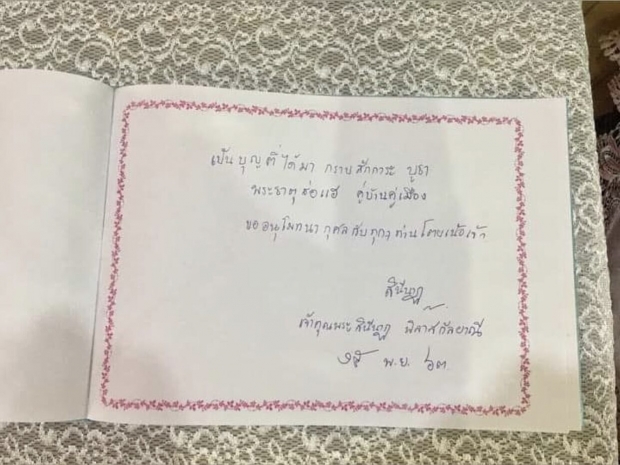 เป็นบุญที่ได้มา กราบสักการะ บูชา
พระธาตุช่อแฮ คู่บ้านคู่เมือง
ขออนุโมทนากุศลกับทุกๆท่านโดยเน้อเจ้า
สินีนาฏ
เจ้าคุณพระสินีนาฏ พิลาสกัลยาณี
พ.ย. ๖๓